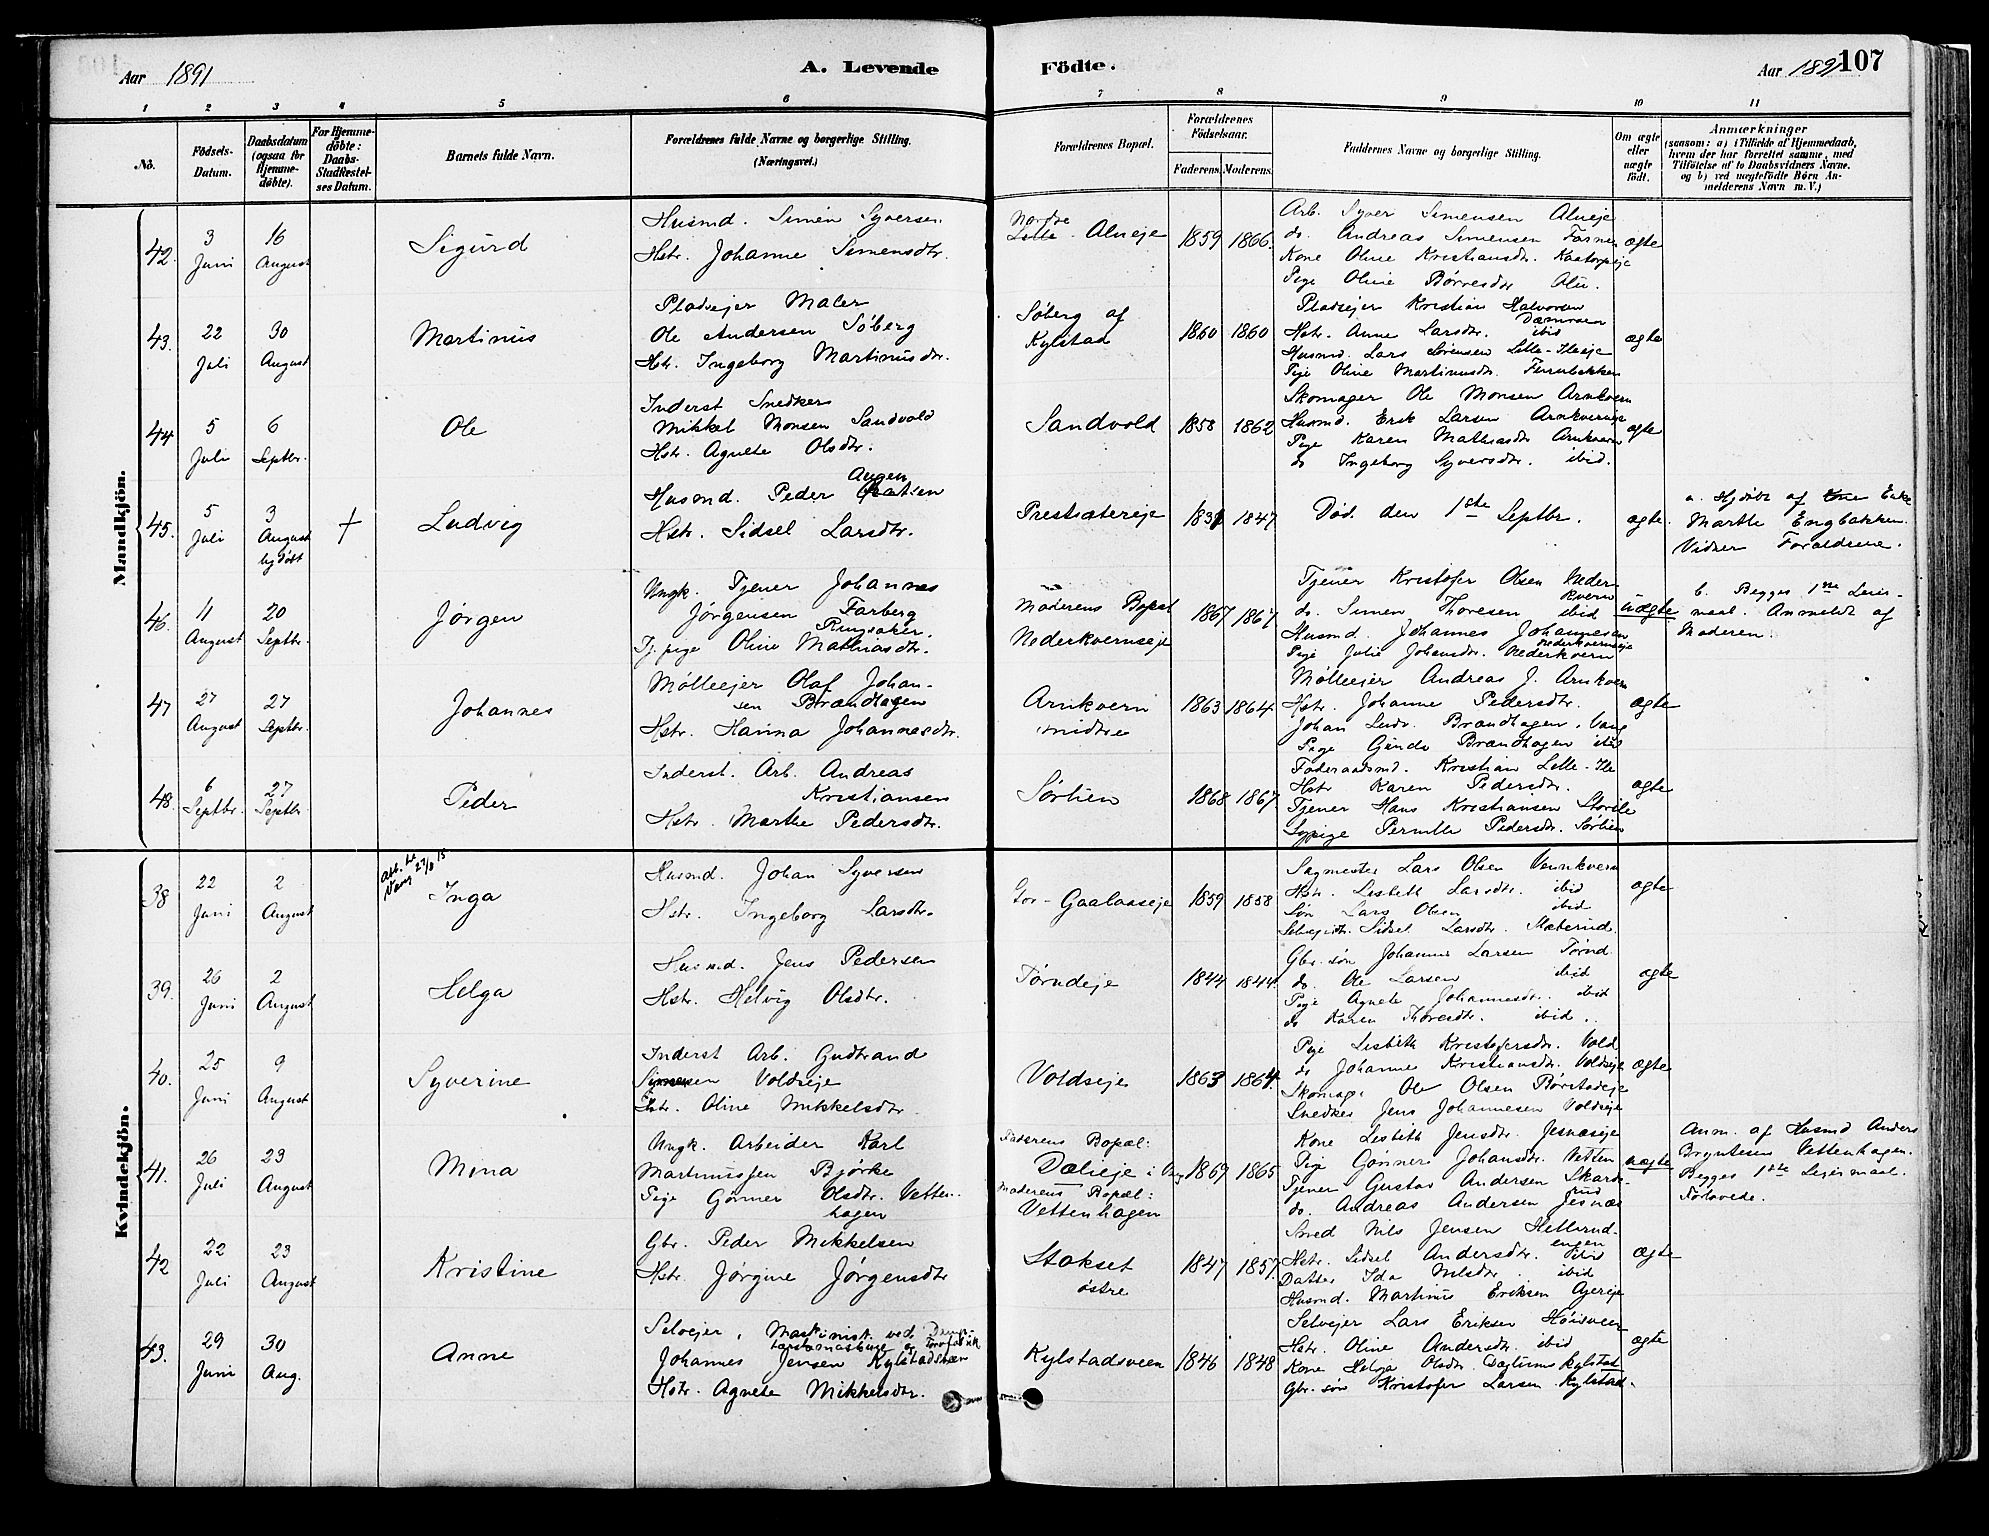 Aar 1891
A. Levende
Födte.
Aar 1891
107
1 2 3 4 5 6 7 8 9 10 11
No.
Födsels-Datum.
Daabsdatum (ogsaa for Hjemme-døbte).
For Hjemme-døbte: Daabs-Stadfæstel-ses Datum.
Barnets fulde Navn.
Forældrenes fulde Navne og borgerlige Stilling. (Næringsvei.)
Forældrenes Bopæl.
Forældrenes Födselsaar.
Faderens. Moderens.
Faddernes Navne og borgerlige Stilling.
Om ægte eller uægte født.
Anmærkninger
(saasom: a) i Tilfælde af Hjemmedaab, hvem der har forrettet samme, med Tilføielse af to Daabsvidners Navne. og b) ved uægtefødte Børn An-melderens Navn m. V.)
Mandkjön.
42. 3 Juni 16 August Sigurd
Husmd. Simen Syversen
Hstr. Johanne Simensdtr.
Nordre Alueje 1859 1866.
Arb. Syver Simensen Alueje
do. Andreas Simensen
Kone Oline Kristiansdtr.
Pige Oline Børresdtr Alu.
ægte
43. 22 Juli 30 August Martinus
Pladsejer Maler
Ole Andersen Söberg
Hstr. Ingeborg Martinusdtr.
Söberg af Kylstad 1860 1860
Pladsejer Kristian Halvorsen
Hstr. Anne Larsdtr. ibid
Husmd. Lars Sörensen Lille-Ileeje
Pige Oline Martinusdtr.
ægte
44 5 Juli 6 Septbr. Ole
Inderst Snedker
Mikkel Monsen Sandvold
Hstr. Agnete Olsdtr.
Sandvold 1858 1862
Skomager Ole Monsen Arnkvern
Husmd. Erik Larsen Arnkverneje
Pige Karen Mathiasdtr Arnkvern
do Ingeborg Syversdtr. ibid.
ægte
45. 5 Juli 3 August hjdøbt + Ludvig
Husmd. Peder
Hstr. Sidsel Larsdtr.
Prestsætereje 1847
Død den 1ste Septbr.
ægte
a. Hjdøbt af Enke
Marthe Engbakken.
Vidner Forældrene.
46. 11 August 20 Septbr. Jørgen
Ungk. Tjener Johannes
Jørgensen Farberg
Ringsaker.
Tj.pige Oline Mathiasdtr.
Moderens Bopæl
Nederkvernseje 1867 1867
Tjener Kristofer Olsen Nederkvern
do. Simen Thoresen ibid
Husmd. Johannes Johannesen Nederkvernseje
Pige Julie Johansdtr. Nederkvern
uægte
b. Begges 1ste Leiermaal. Anmeldt af Moderen.
47 27 August 27 Septbr. Johannes
Mölleejer Olaf Johansen Brændhagen
Hstr. Hanna Johannesdtr.
Arnkvern midtre 1863 1864
Mölleejer Andreas J. Arnkvern
Hstr. Johanne Pedersdtr.
Johan Ludv. Brændhagen, Vang
Pige Brændhagen ibid
ægte
48. 6 Septbr. 27 Septbr. Peder
Inderst. Arb. Andreas
Kristiansen
Hstr. Marthe Pedersdtr.
Sörlien 1868 1867
Föderaadsmd. Kristian Lille-Ile
Hstr Karen Pedersdtr.
Tjener Hans Kristiansen Storile
Sypige Pernille Pedersdtr. Sörlien
ægte
Kvindekjön.
38 22 Juni 2 August Inga
Husmd. Johan Syversen
Hstr. Ingeborg Larsdtr.
Gaalaaseje 1859 1858
Sagmester Lars Olsen
Hstr. Lisbeth Larsdtr. ibid
Søn Lars Olsen ibid
Sidsel Larsdtr.
ægte
39. 26 Juni 2 August Helga
Husmd. Jens Pedersen
Hstr. Helvig Olsdtr.
Törndeje 1844 1844
Gbr. søn Johannes Larsen Törnd.
do. Ole Larsen ibid
Pige Agnete Johannesdtr. ibid
do Karen Thoresdtr. ibid.
ægte
40. 25 Juni 9 August Syverine
Inderst Arb. Gudbrand
Simensen Voldseje
Hstr. Oline Mikkelsdtr.
Voldseje 1863 1864.
Pige Lisbeth Kristofersdtr. Vold
do Johanne Kristiansdtr. Voldseje
Skomag. Ole Olsen Börstadeje
Snedker Jens Johannesen Voldseje
ægte
41. 26 Juli 23 August Mina
Ungk. Arbeider Karl
Martinussen Bjørke
Pige Gönner Olsdtr. Vettenhagen
Faderens Bopæl:
Dælieje i Vang
Moderens Bopæl:
Vettenhagen
1869 1865
Kone Lisbeth Jensdtr. Jesnæseje
Pige Gönner Johansdtr. Vetten
Tjener Gustav Andersen
do. Andreas Andersen Jesnæs
uægte
Anm. af Husmd Anders
Bryntesen Vettenhagen.
Begges 1ste Leiermaal.
Forlovede.
42 22 Juli 23 August Kristine
Gbr. Peder Mikkelsen
Hstr. Jörgine Jörgensdtr
Stokset östre 1847 1857.
Smed Nils Jensen Hellerudengen
Hstr. Sidsel Andersdtr. ibid
Datter Ida Nilsdtr. ibid
Husmd. Martinus Eriksen Ajereje
ægte
43. 29 Juni 30 Aug. Anne
Selvejer, Maskinist ved
Johannes Jensen Kylstadsveen
Hstr. Agnete Mikkelsdtr.
Kylstadsveen 1846 1848
Selvejer Lars Eriksen Höisveen
Hstr. Oline Andersdtr. ibid
Kone Helga Olsdtr. Kylstad
Gbr. søn Kristofer Larsen Kylstad.
ægte